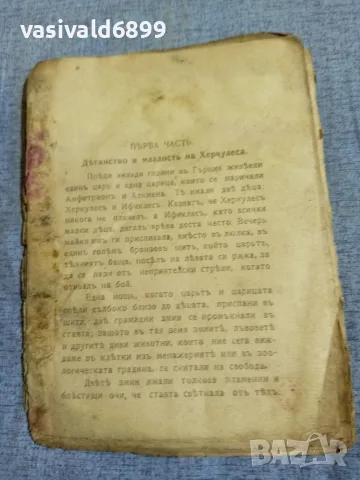 vasivald6899
ПЪРВА ЧАСТЬ.
Дѣтанство и младость на Херкулеса.
Прѣди хиляди години въ Гърция живѣели
единъ царь и една царица, които се наричали
Амфитрионъ и Алкмена. Тѣ имали двѣ дѣца:
Херкулесъ и Ификлесъ. Казватъ, че Херкулесъ
никога не плакалъ, а Ификлесъ, като всички
малки дѣца, дигалъ врѣва доста често. Вечерь
майка имъ ги приспивала, вмѣсто въ люлка, въ
единъ голѣмъ бронзовъ щитъ, който царьтъ,
тѣхниятъ баща, носѣлъ на лѣвата си рѫка, за
да се пази отъ неприятелски стрѣли, когато
отивалъ на бой.
Една нощь, когато царьтъ и царицата
спѣли дълбоко близо до дѣцата, приспани въ
щита, двѣ грамадни змии се промъкнали въ
стаята; защото въ тия врѣмена змиитѣ, лъвоветѣ
и другитѣ диви животни, които ние сега виж-
даме въ клѣтки изъ менажериитѣ или въ зоо-
логическата градина, се скитали на свобода.
Двѣтѣ змии имали толкова пламенни и
блѣстящи очи, че стаята свѣтнала отъ тѣхъ.
BAZAR